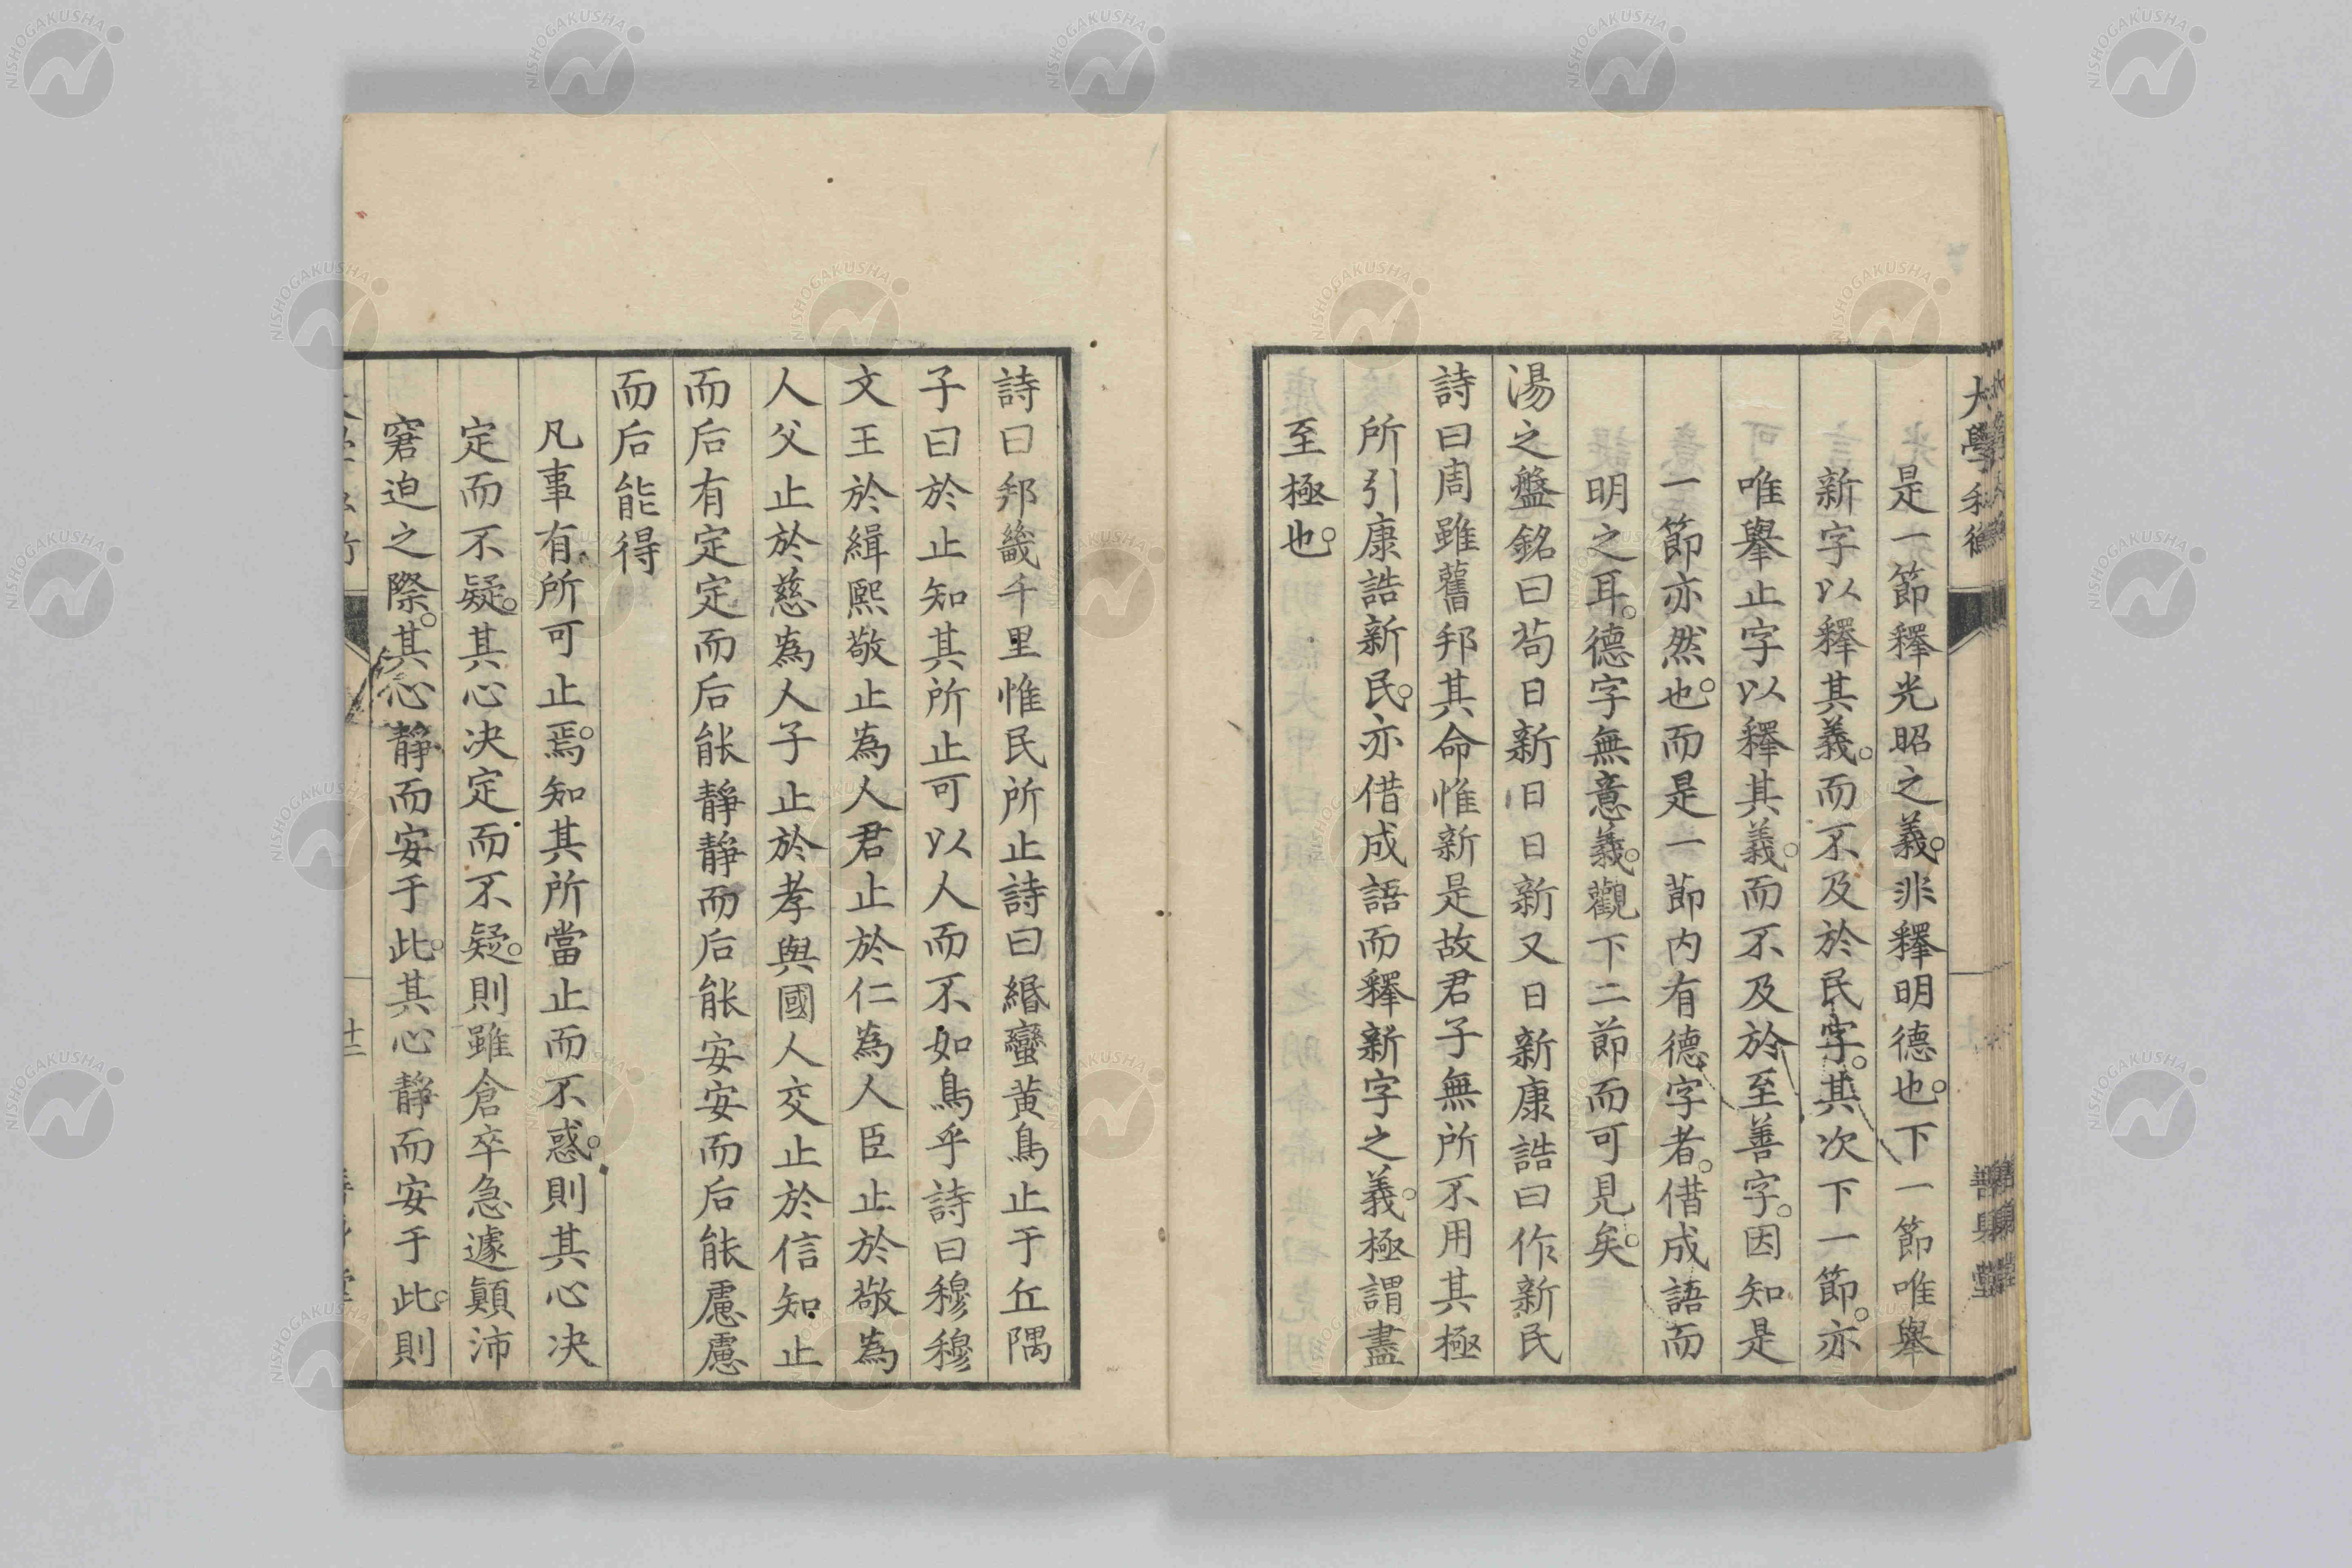 是一節釋光昭之義。非釋明德也。下一節唯舉
新字以釋其義。而不及於民字。其次下一節。亦
唯舉止字以釋其義。而不及於至善字。因知是
一節亦然也。而是一節内有德字者。借成語而
明之耳。德字無意義。觀下二節而可見矣。
湯之盤銘曰苟日新日日新又日新康誥曰作新民
詩曰周雖舊邦其命惟新是故君子無所不用其極
所引康誥新民。亦借成語而釋新字之義。極謂盡
至極也。
詩曰邦畿千里惟民所止詩曰緡蠻黃鳥止于丘隅
子曰於止知其所止可以人而不如鳥乎詩曰穆穆
文王於緝熙敬止為人君止於仁為人臣止於敬為
人父止於慈為人子止於孝與國人交止於信知止
而后有定定而后能靜靜而后能安安而后能慮慮
而后能得
凡事有所可止焉。知其所當止而不惑。則其心决
定而不疑。其心决定而不疑。則雖倉卒急遽顛沛
窘迫之際。其心靜而安于此。其心靜而安于此。則
大學
善與堂
NISHOGAKUSHA